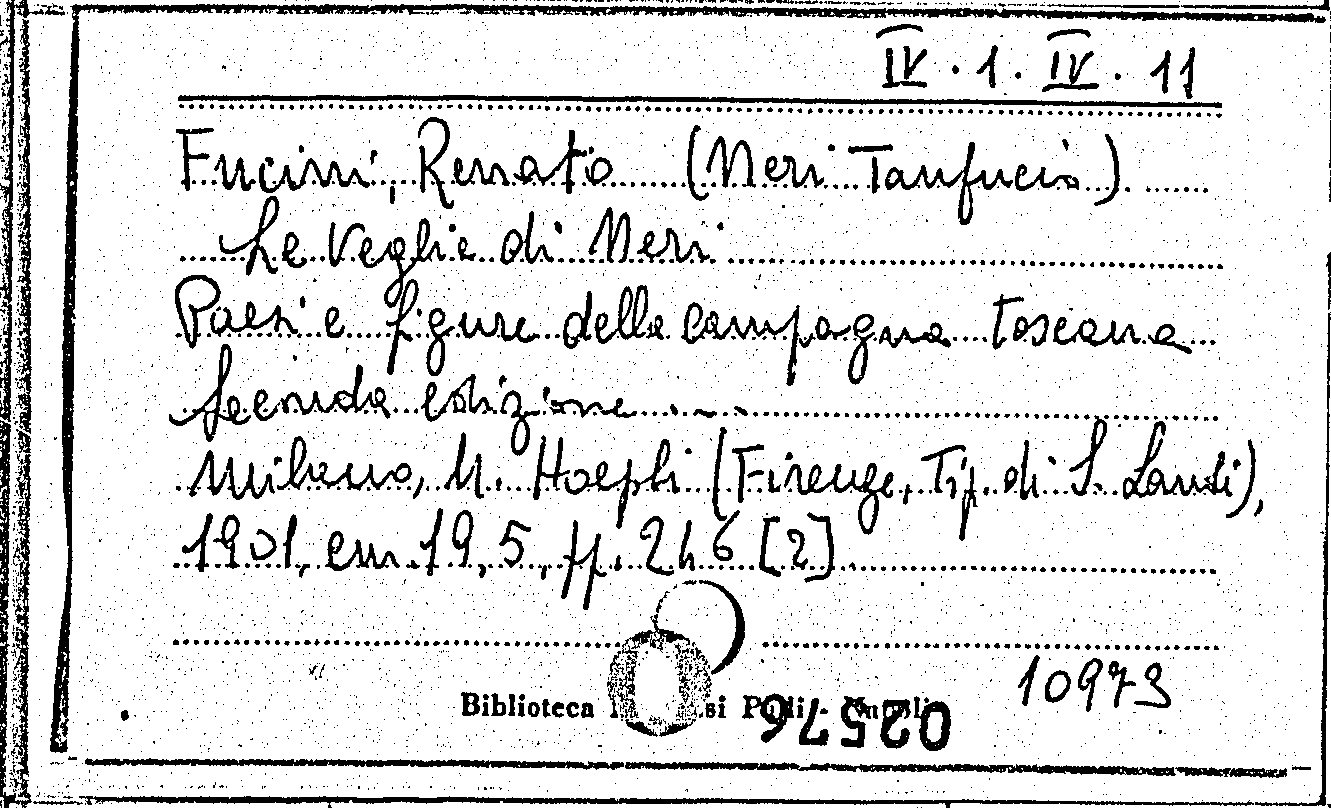 IV . 1 . IV . 11
Fucini, Renato (Neri Tanfucio)
Le Veglie di Neri
Paesi e figure della campagna toscana
Seconda edizione ...
Milano, U. Hoepli (Firenze, Tip. di S. Landi),
1901, cm. 19,5, pp. 246 [2]
10973
Biblioteca
02576